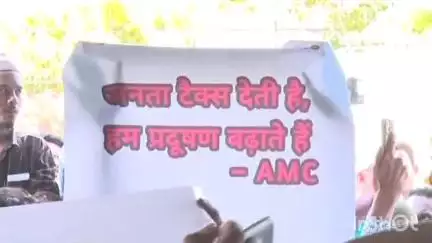 जनता टैक्स देती है,
हम प्रदूषण बढ़ाते हैं
- AMC
InShot